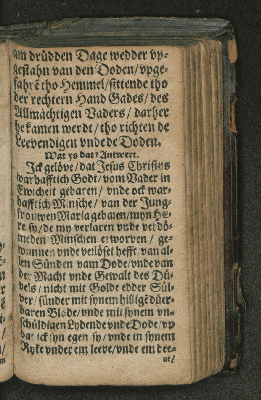 am drüdden Dage wedder vp-
gestahn van den Doden/ vpge-
fahrē tho Hemmel/ sittende tho
der rechtern Hand Gades/ des
Allmächtigen Vaders/ darher
he kamen werdt/ tho richten de
Leevendigen vnde de Doden.
Wat ys dat? Antwert.
Ick gelöve/ dat Jesus Christus
warhafftich Godt/ vom Vader in
Ewicheit gebaren/ vnde ock war-
hafftich Minsche/ van der Jung-
frouwen Maria gebaren/ myn HE-
re sy/ de my verlaren vnde verdö-
meden Minschen erworven/ ge-
wunnen vnde verlöset hefft van al-
len Sünden vam Dode/ vnde van
der Macht vnde Gewalt des Dü-
vels/ nicht mit Golde edder Sül-
ver/ sünder mit synem hilligē düer-
baren Blode/ vnde mit synem vn-
schüldigen Lydende vnde Dode/ vp
dat ick syn egen sy/ vnde in synem
Ryke vnder em leeve/ vnde em dee-
ne/